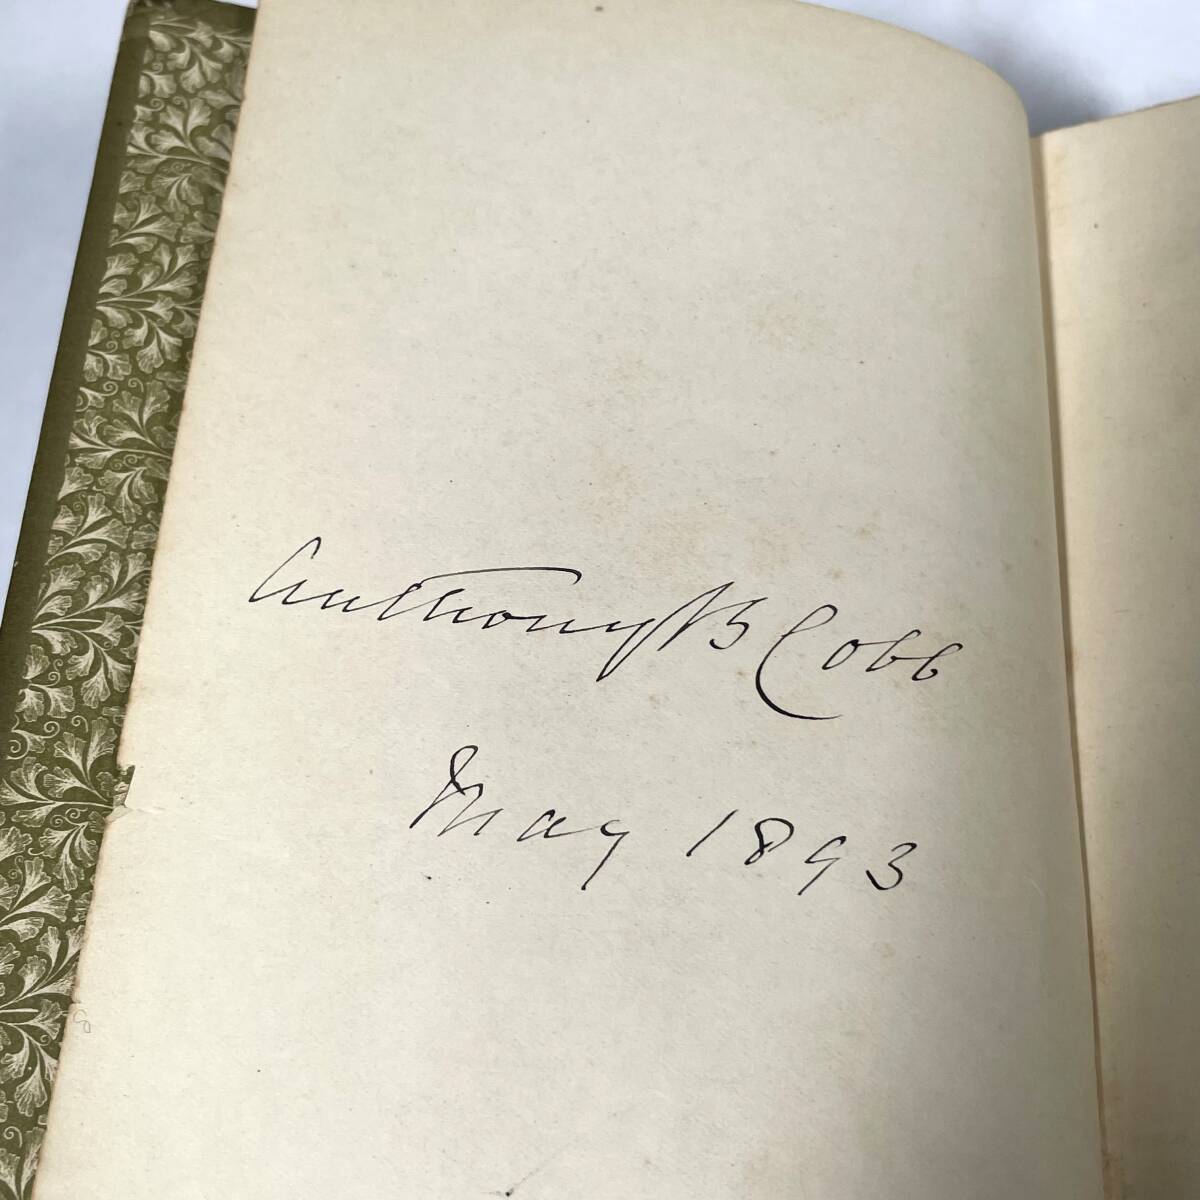 Anthony B Cobb
May 1893